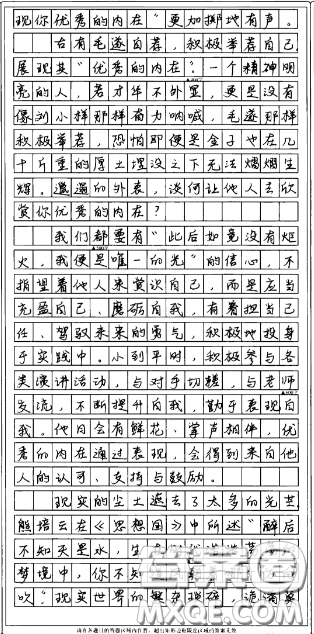 现你优秀的内在"更加掷地有声。
古有毛遂自荐，积极举荐自己，
展现其"优秀的内在"？一个精神明
亮的人，若才华不外里，更是没有
像到小样那样有力呐喊，毛遂那样
积极举荐，恐怕即便是金子也在几
十斤重的厚土埋没之下无法熠熠生
辉。遭逼的外表，谈何让他人去欣
赏你优秀的内在？
我们都要有"此后如竟没有炬
火，我便是唯一的光"的信心，不
指望着他人来赏识自己，而是应当
充盈自己、磨砺自我，有着担当己
任、驾驭未来的勇气，积极地投身
于实践中。小到平时，积极参与各
类演讲活动，与对手切磋，与老师
交流，不断提升自我，勤于表现自
我。他日会有鲜花、掌声相伴，优
秀的内在通过表现，会得到来自他
人的认可、支持与鼓励。
现实的尘土遮去了太多的光芒，
熊培云在《思想国》中所述"醉后
不知天是水，生
梦境中，你不知
吹"。现实世界的